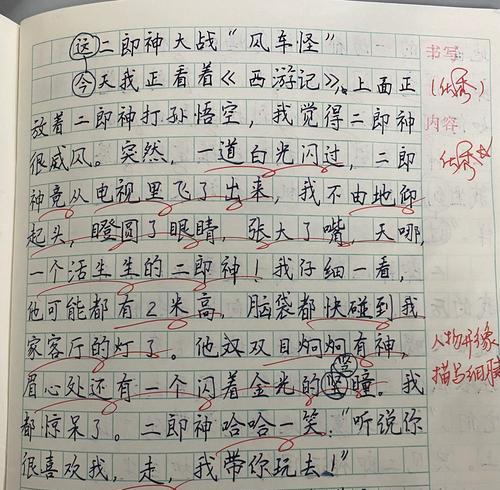 二郎神大战“风车怪” 书写
今天我正看着《西游记》，上面正 (优秀)
放着二郎神打孙悟空，我觉得二郎神 内容
很威风。突然，一道白光闪过，二郎 优秀
神竟从电视里飞了出来，我不由地仰
起头，瞪圆了眼睛，张大了嘴，天哪，
一个活生生的二郎神！我仔细一看，
他可能都有2米高，脑袋都快碰到我
家客厅的灯了。他双目炯炯有神， 人物形象
眉心处还有一个闪着金光的竖瞳。我 描写细腻
都惊呆了。二郎神哈哈一笑：“听说你
很喜欢我，走，我带你玩去！”